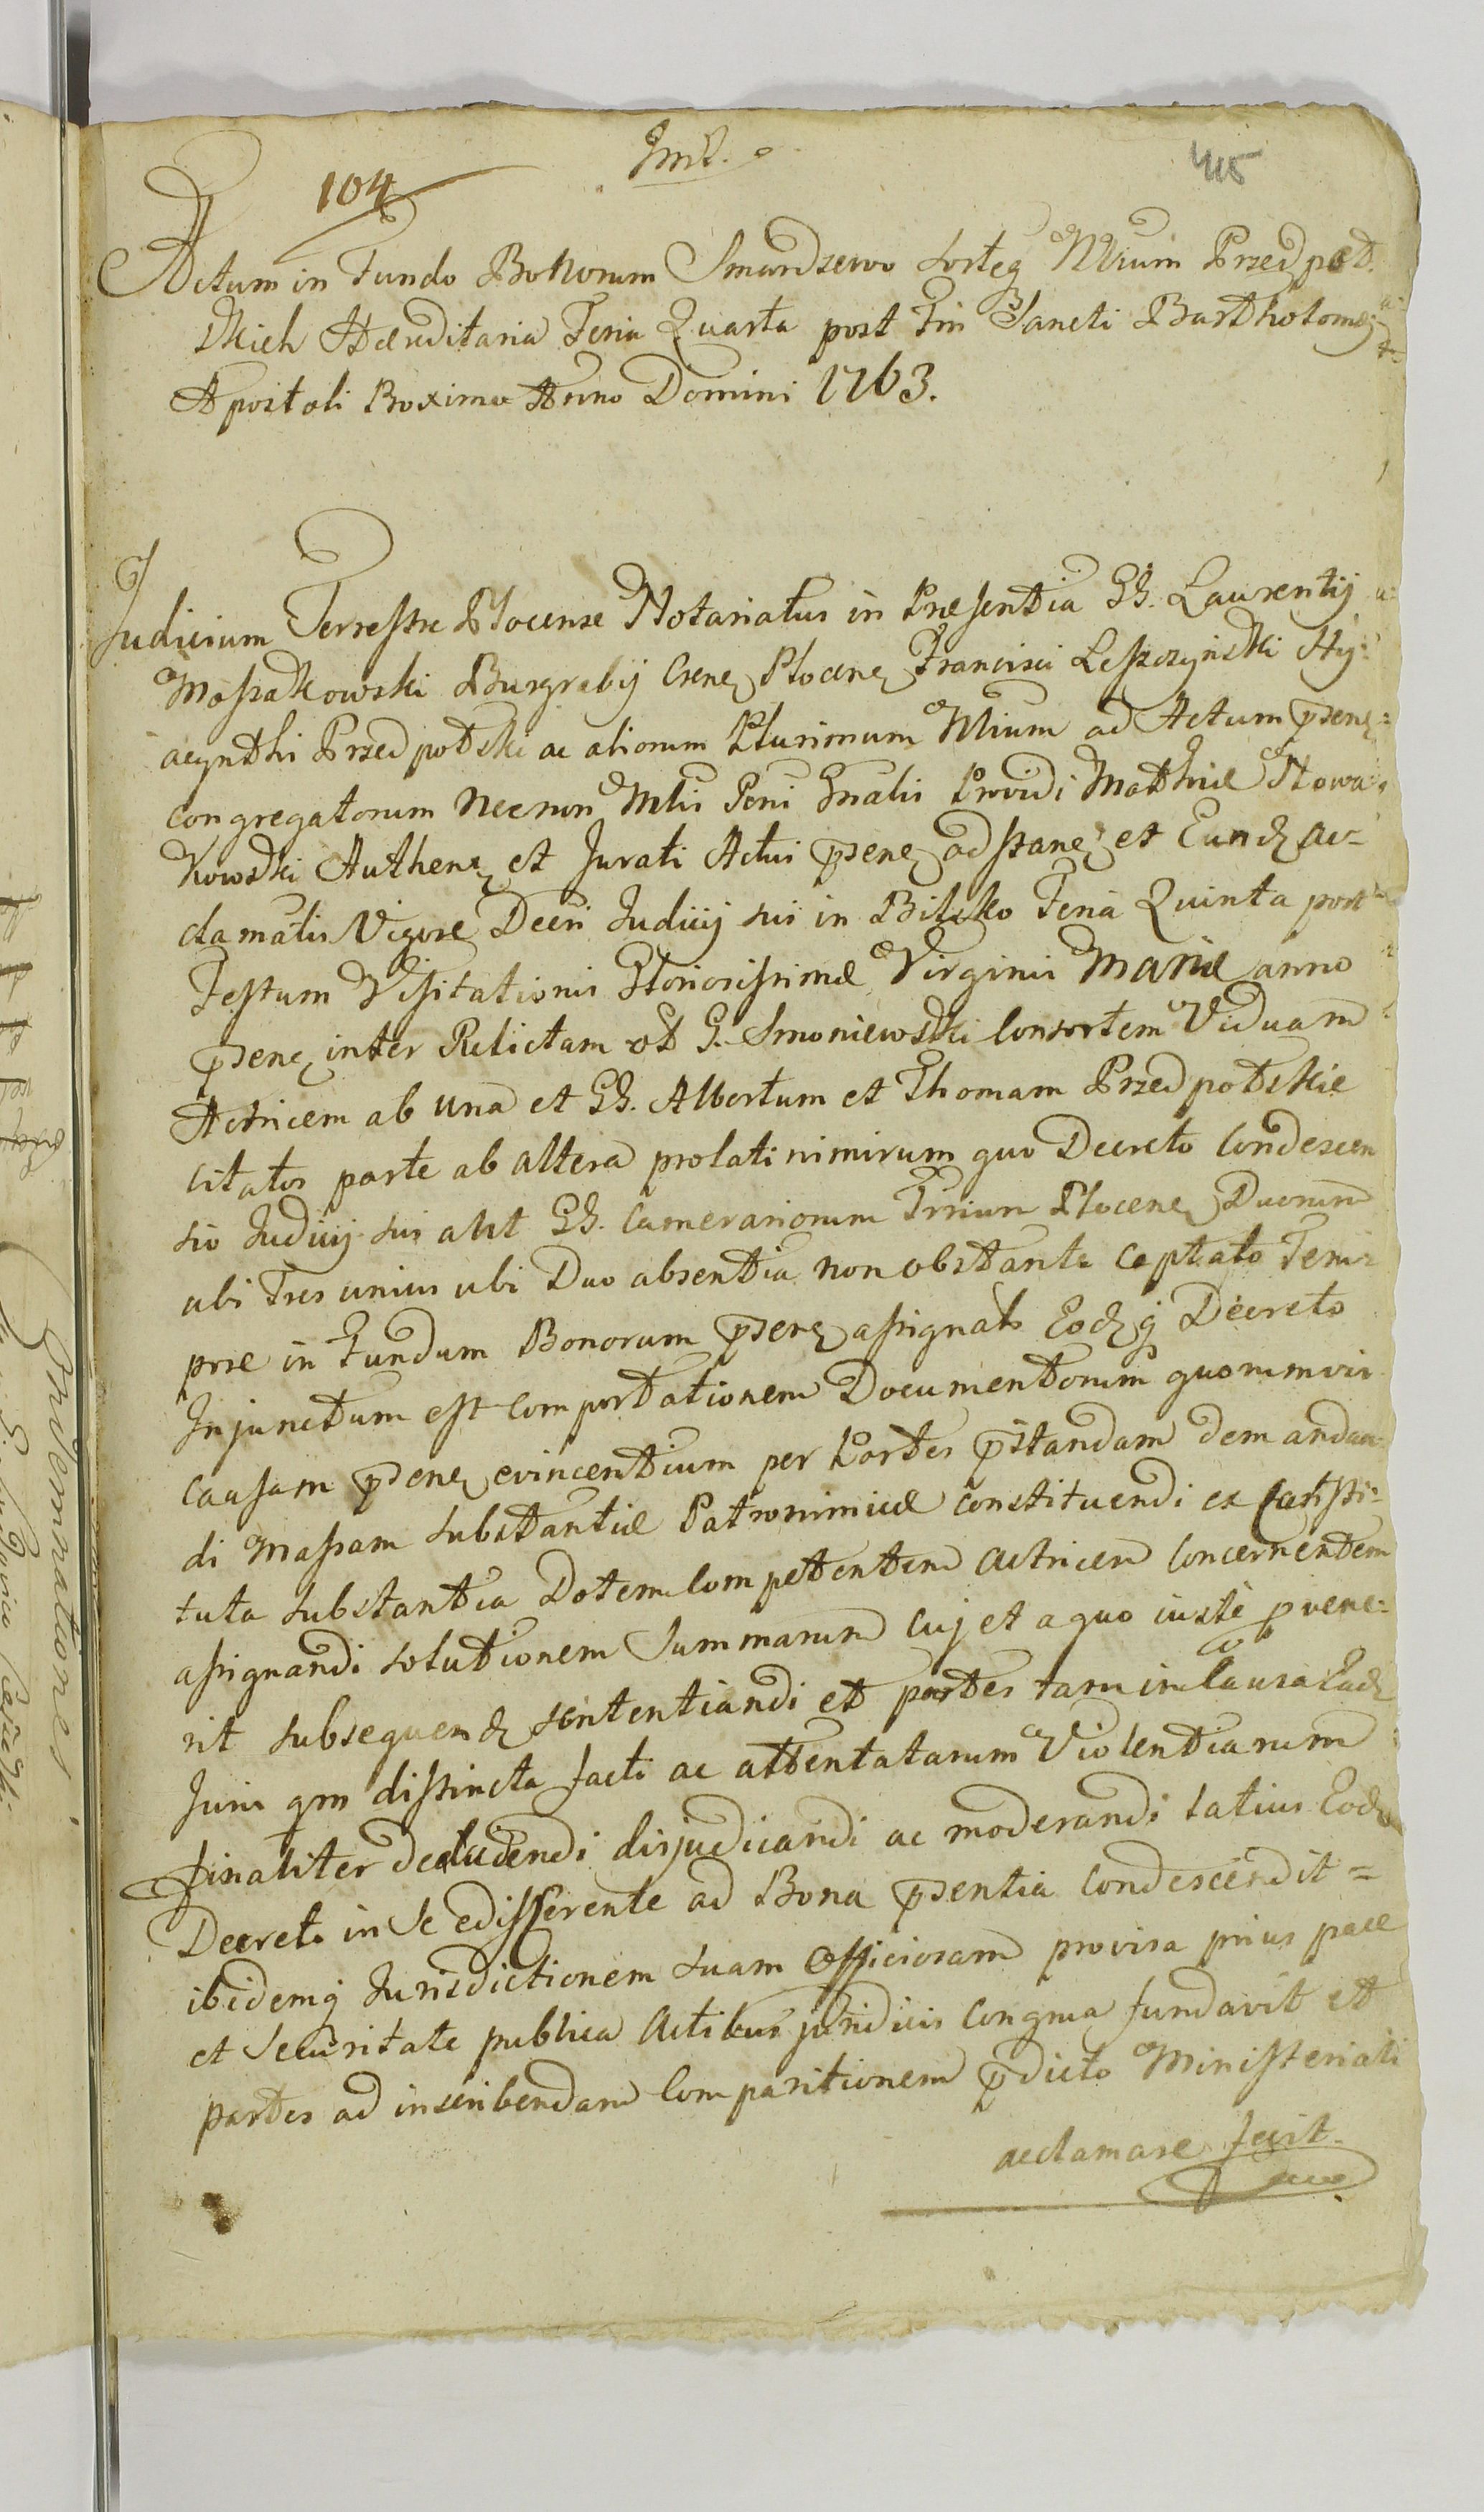 Jmś.
104
415
Actum in Fundo Bonorum Smardzewo sorteq Nlium Przedpeł
skich Hæreditaria Feria Quarta post Fm Sancti Barthołomæj
Apostoli Proxima Anno Domini 1763.
Judicium Terrestre Plocense Notariatus in Præsentia GG. Laurentij
Mossakowski Burgrabij Csenę Plocenę Francisci Leszczynski Hy-
acynthi Przedpełski ac aliorum Plurimum Nlium ad Actum p̄senę
congregatorum necnon Mlis Reni Gnalis Providi Matthiæ Nowa-
kowski Authenę et Jurati Actui p̄senę adstanę et Eundę ac-
clamałis Vigore Decri Judicij sui in Bilsko Feria Quinta post
Festum Visitationis Gloriosissimæ Virginis Mariæ anno
p̄senę inter Relictam ol G. Smoniewski Consortem Viduam
Actricem ab una et GG. Albertum et Thomam Przedpełskie
citatos parte ab altera prolati nimirum quo Decreto Condescen
sio Judicij sui alit GG. Camerariorum Trrium Plocenę Duorum
ubi Tres unius ubi Duo absentia non obstante captato Tem-
pore in Fundum Bonorum p̄senę assignato Eodęq Decreto
Injunctum est comportationem Documentorum quorumvis
causam p̄senę evincentium per Partes p̄standam demandan
di Massam substantiæ Patronimicæ constituendi ex consti-
tuta substantia Dotem Competentem Actricem Concernentem
assignandi solutionem Summarum cuj et a quo iustè pvene-
rit subsequendę sententiandi et partes tam in Causa Eadę
Juris qm distincta facti ac attentatarum Violentiarum
finaliter decludendi disjudicandi ac moderandi latius Eodę
Decreto in se edisserente ad Bona p̄sentia Condescendit=
ibidemq Jurisdictionem suam Officiosam provisa prius pace
et securitate publica Actibus juridicis Congrua fundavit et
partes ad inscribendam Comparitionem p̄dicto Ministeriali
acclamare fecit.